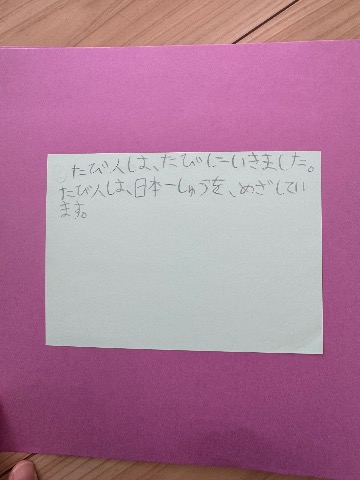 たび人は、たびにいきました。
たび人は、日本一しゅうを、めざしてい
ます。